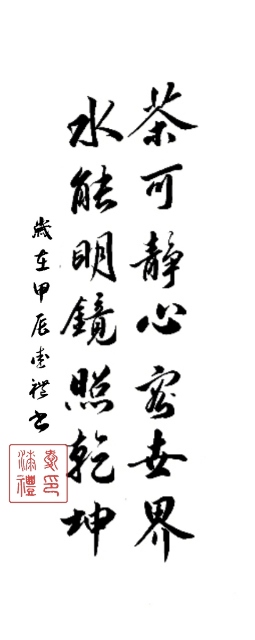 茶可静心容世界
水能明鏡照乾坤
歲在甲辰禮书
印禮